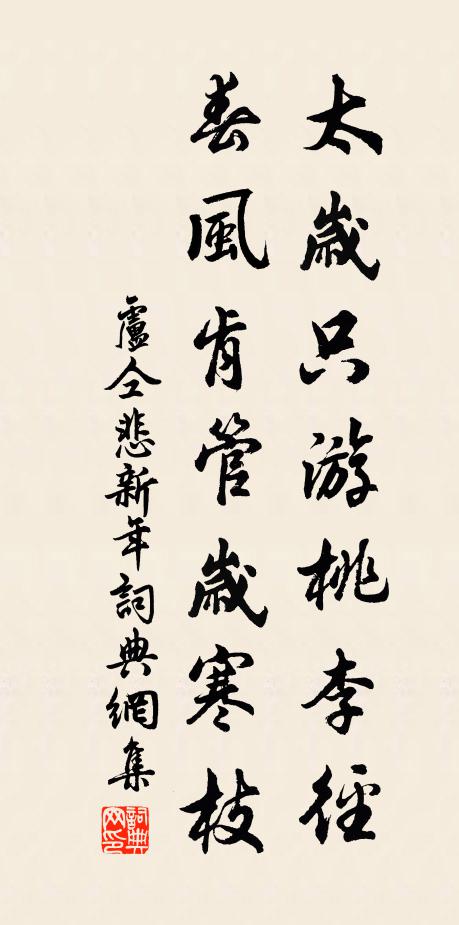 太歲只游桃李徑
春風肯管歲寒枝
盧仝悲新年詞典網集
詞典網印